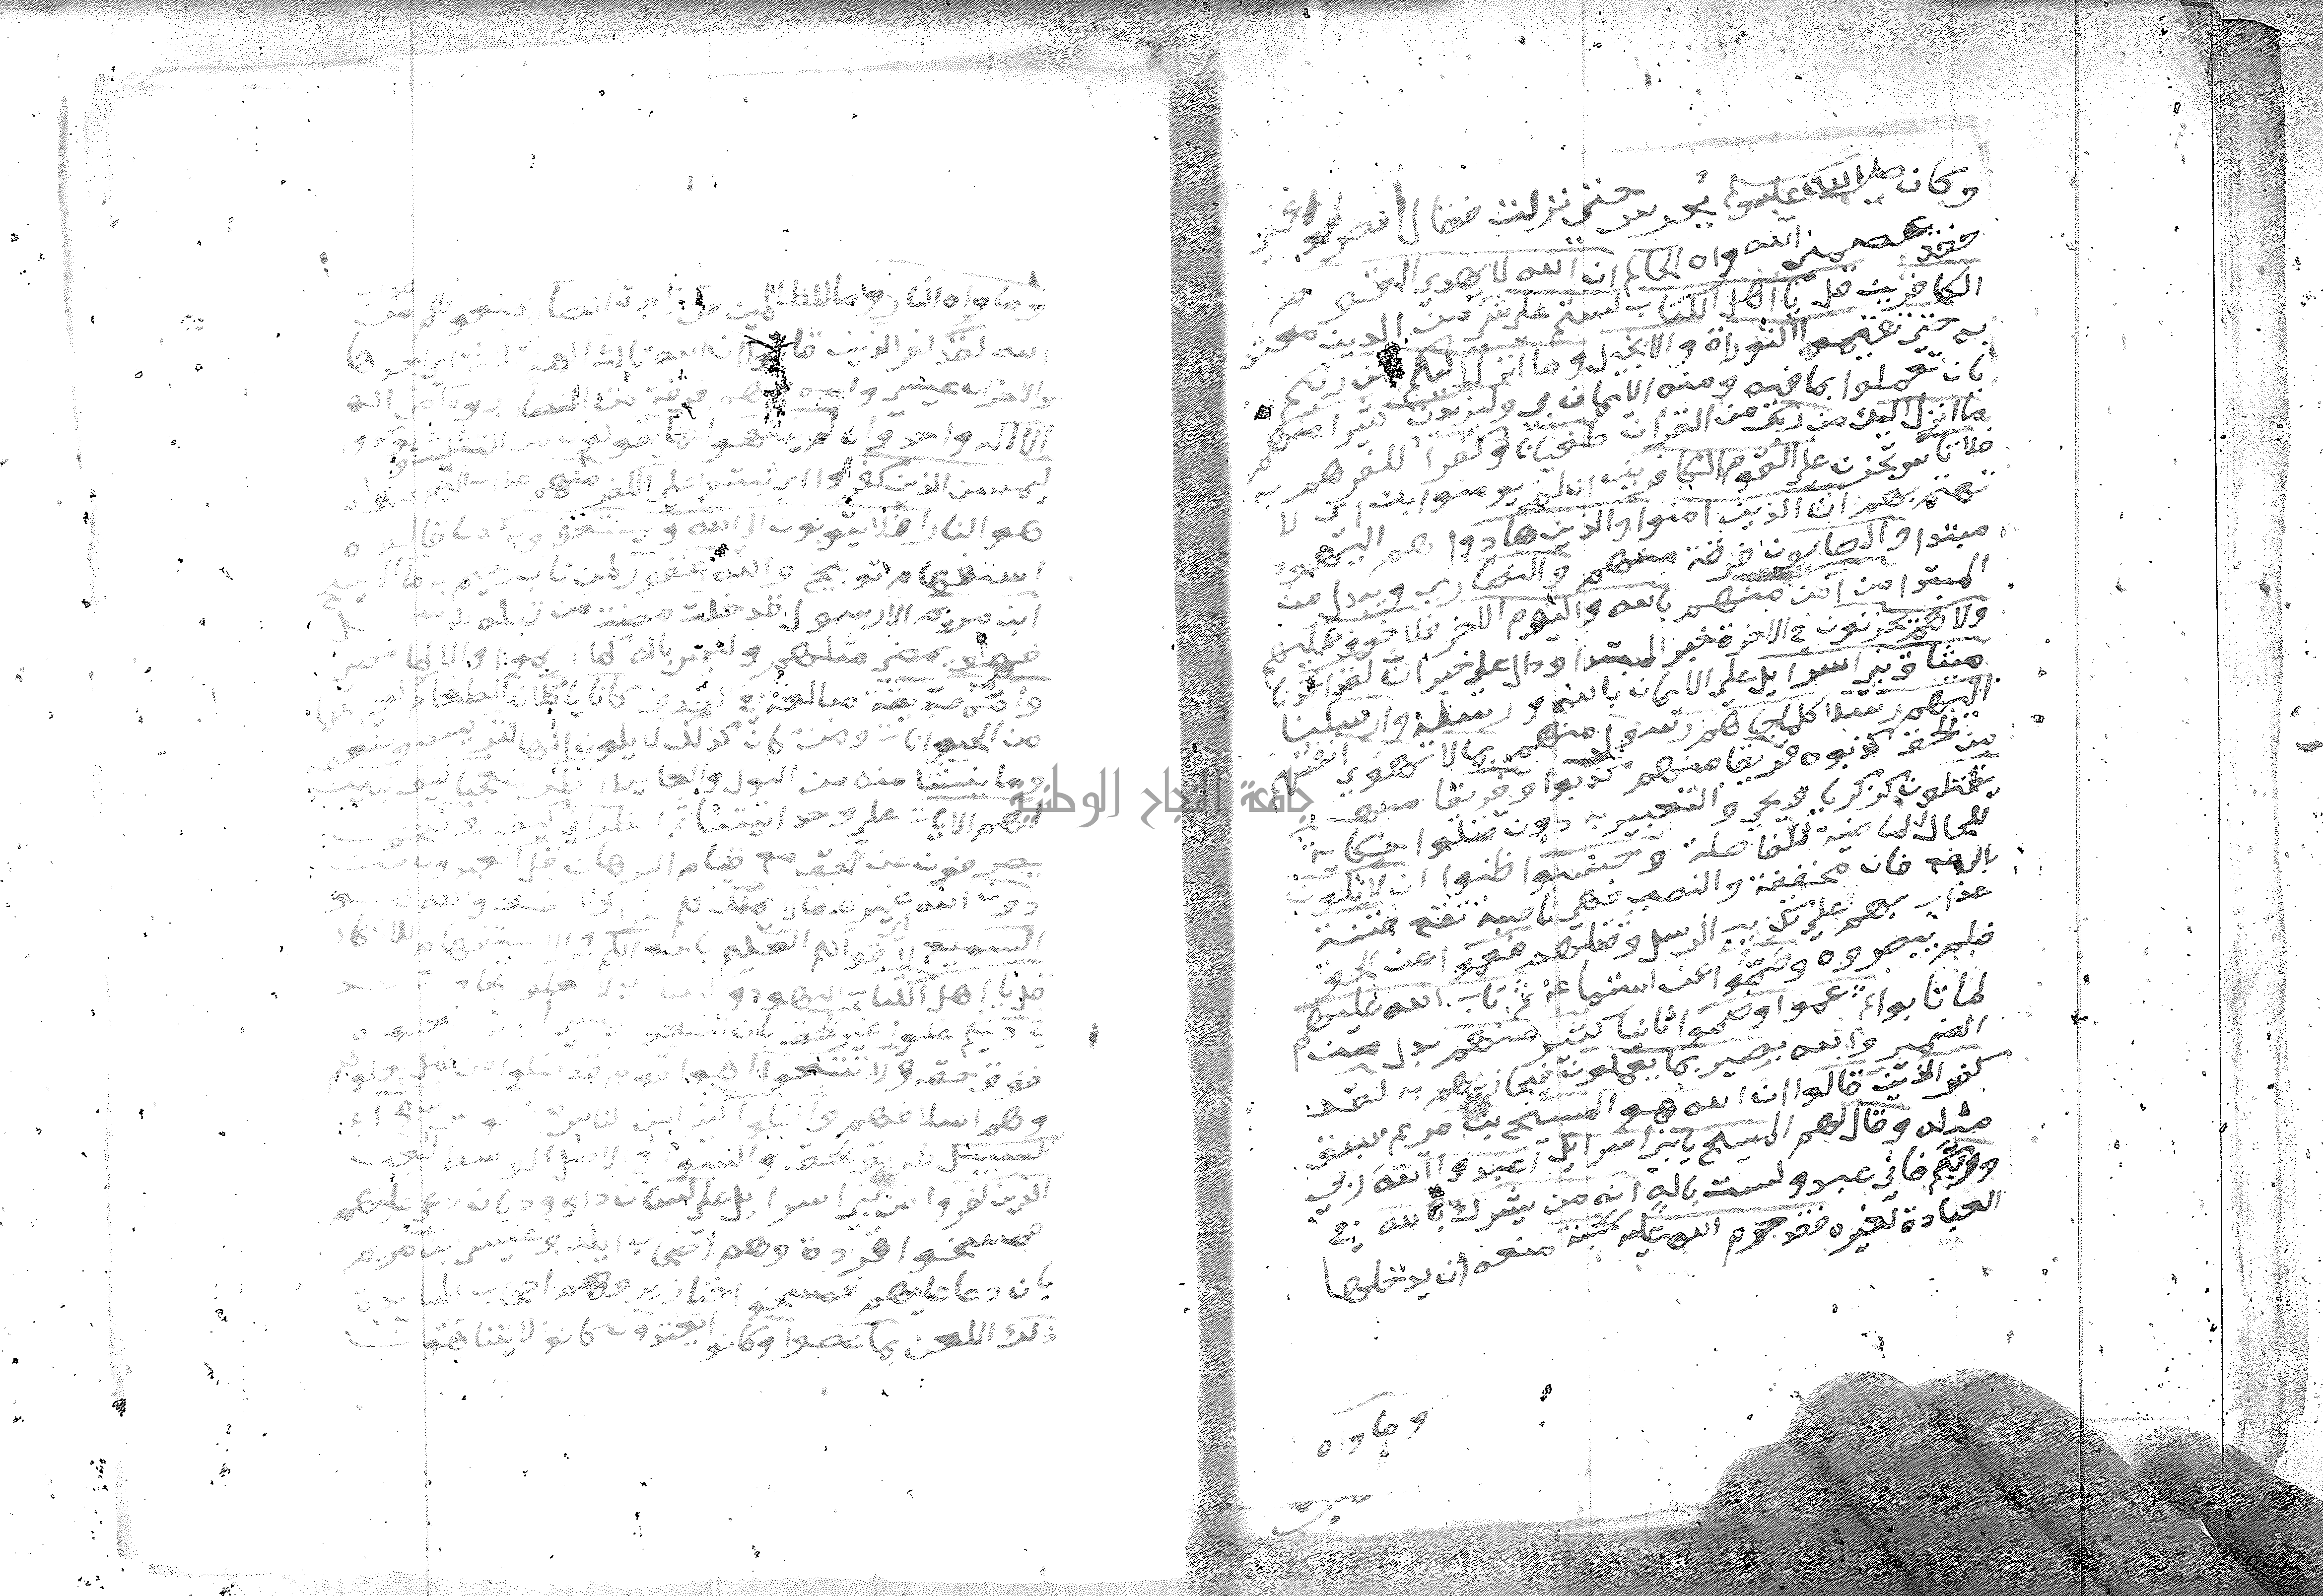 وكان صلى الله عليه وسلم يحرس حتى نزلت فقال انصرفوا عني
فقد عصمني الله رواه الحاكم ان الله لا يهدي القوم
الكافرين قل يا اهل الكتاب لستم على شي من الدين معتد
به حتى تقيموا التوراة والانجيل وما انزل اليكم من ربكم
بان تعملوا بما فيه ومنه الايمان بي وليزيدن كثيرا منهم
ما انزل اليك من ربك من القران طغيانا وكفرا لكفرهم به
فلا تاس تحزن على القوم الكافرين ان لم يومنوا بك اي لا
تهتم بهم ان الذين امنوا والذين هادوا هم اليهود
مبتدا والصابون فرقة منهم والنصارى ويبدل من
المبتدا من آمن منهم بالله واليوم الاخر فلا خوف عليهم
ولا هم يحزنون في الاخرة خبر المبتدا ودال على خبر ان لقد اخذنا
ميثاق بني اسرايل على الايمان بالله ورسله وارسلنا
اليهم رسلا كلما جاهم رسول منهم بما لا تهوى انفسهم
من الحق كذبوه فريقا منهم كذبوا وفريقا منهم
يقتلون كزكريا ويحيى والتعبير به دون قتلوا حكاية
للحال الماضية للفاصلة وحسبوا ظنوا ان لا تكون
بالرفع فان مخففة والنصب فهي ناصبة تقع فتنة
عذاب بهم على تكذيب الرسل وقتلهم فعموا عن الحق
فلم يبصروه وصموا عن استماعه ثم تاب الله عليهم
لما تابوا ثم عموا وصموا ثانيا كثير منهم بدل من
الضمير والله بصير بما يعملون فيجازيهم به لقد
كفر الذين قالوا ان الله هو المسيح بن مريم سبق
مثله وقال لهم المسيح يا بني اسرايل اعبدوا الله ربي
وربكم فاني عبد ولست باله انه من يشرك بالله في
العبادة غيره فقد حرم الله عليه الجنة منعه ان يدخلها
وماواه
وماواه النار وما للظالمين من زايدة انصار يمنعونهم من عذاب
الله لقد كفر الذين قالوا ان الله ثالث الهة ثلاثة اي احدها
والاخران عيسى وامه وهم فرقة من النصارى وما من اله
الا اله واحد وان لم ينتهوا عما يقولون من التثليث
ليمسن الذين كفروا اي ثبتوا على الكفر منهم عذاب اليم
هو النار افلا يتوبون الى الله ويستغفرونه مما قالوه
استفهام توبيخ والله غفور لمن تاب رحيم به ما المسيح
ابن مريم الا رسول قد خلت مضت من قبله الرسل
فهو يمضي مثلهم وليس باله كما زعموا والا لما مضى
وامه صديقة مبالغة في الصدق كانا ياكلان الطعام
من الحيوانات ومن كان كذلك لا يكون الها لتركيبه وضعفه
وما ينشا منه من البول والغايط انظر متعجبا كيف نبين
لهم الايات على وحدانيتنا ثم انظر اني كيف يوفكون
يصرفون عن الحق مع قيام البرهان قل اتعبدون من
دون الله غيره ما لا يملك لكم ضرا ولا نفعا والله هو
السميع لاقوالكم العليم باحوالكم والاستفهام للانكار
قل يا اهل الكتاب اليهود والنصارى لا تغلوا
في دينكم غلوا غير الحق بان
فوق حقه ولا تتبعوا اهوا قوم قد ضلوا من قبل بغلوهم
وهم اسلافهم واضلوا كثيرا من الناس وضلوا عن سواء
السبيل طريق الحق والسوا في الاصل الوسط لعن
الذين كفروا من بني اسرايل على لسان داوود بان دعى عليهم
فمسخوا قردة وهم اصحاب ايلة وعيسى بن مريم
بان دعا عليهم فمسخوا خنازير وهم اصحاب المايدة
ذلك اللعن بما عصوا وكانوا يعتدون كانوا لا يتناهون
جامعة النجاح الوطنية